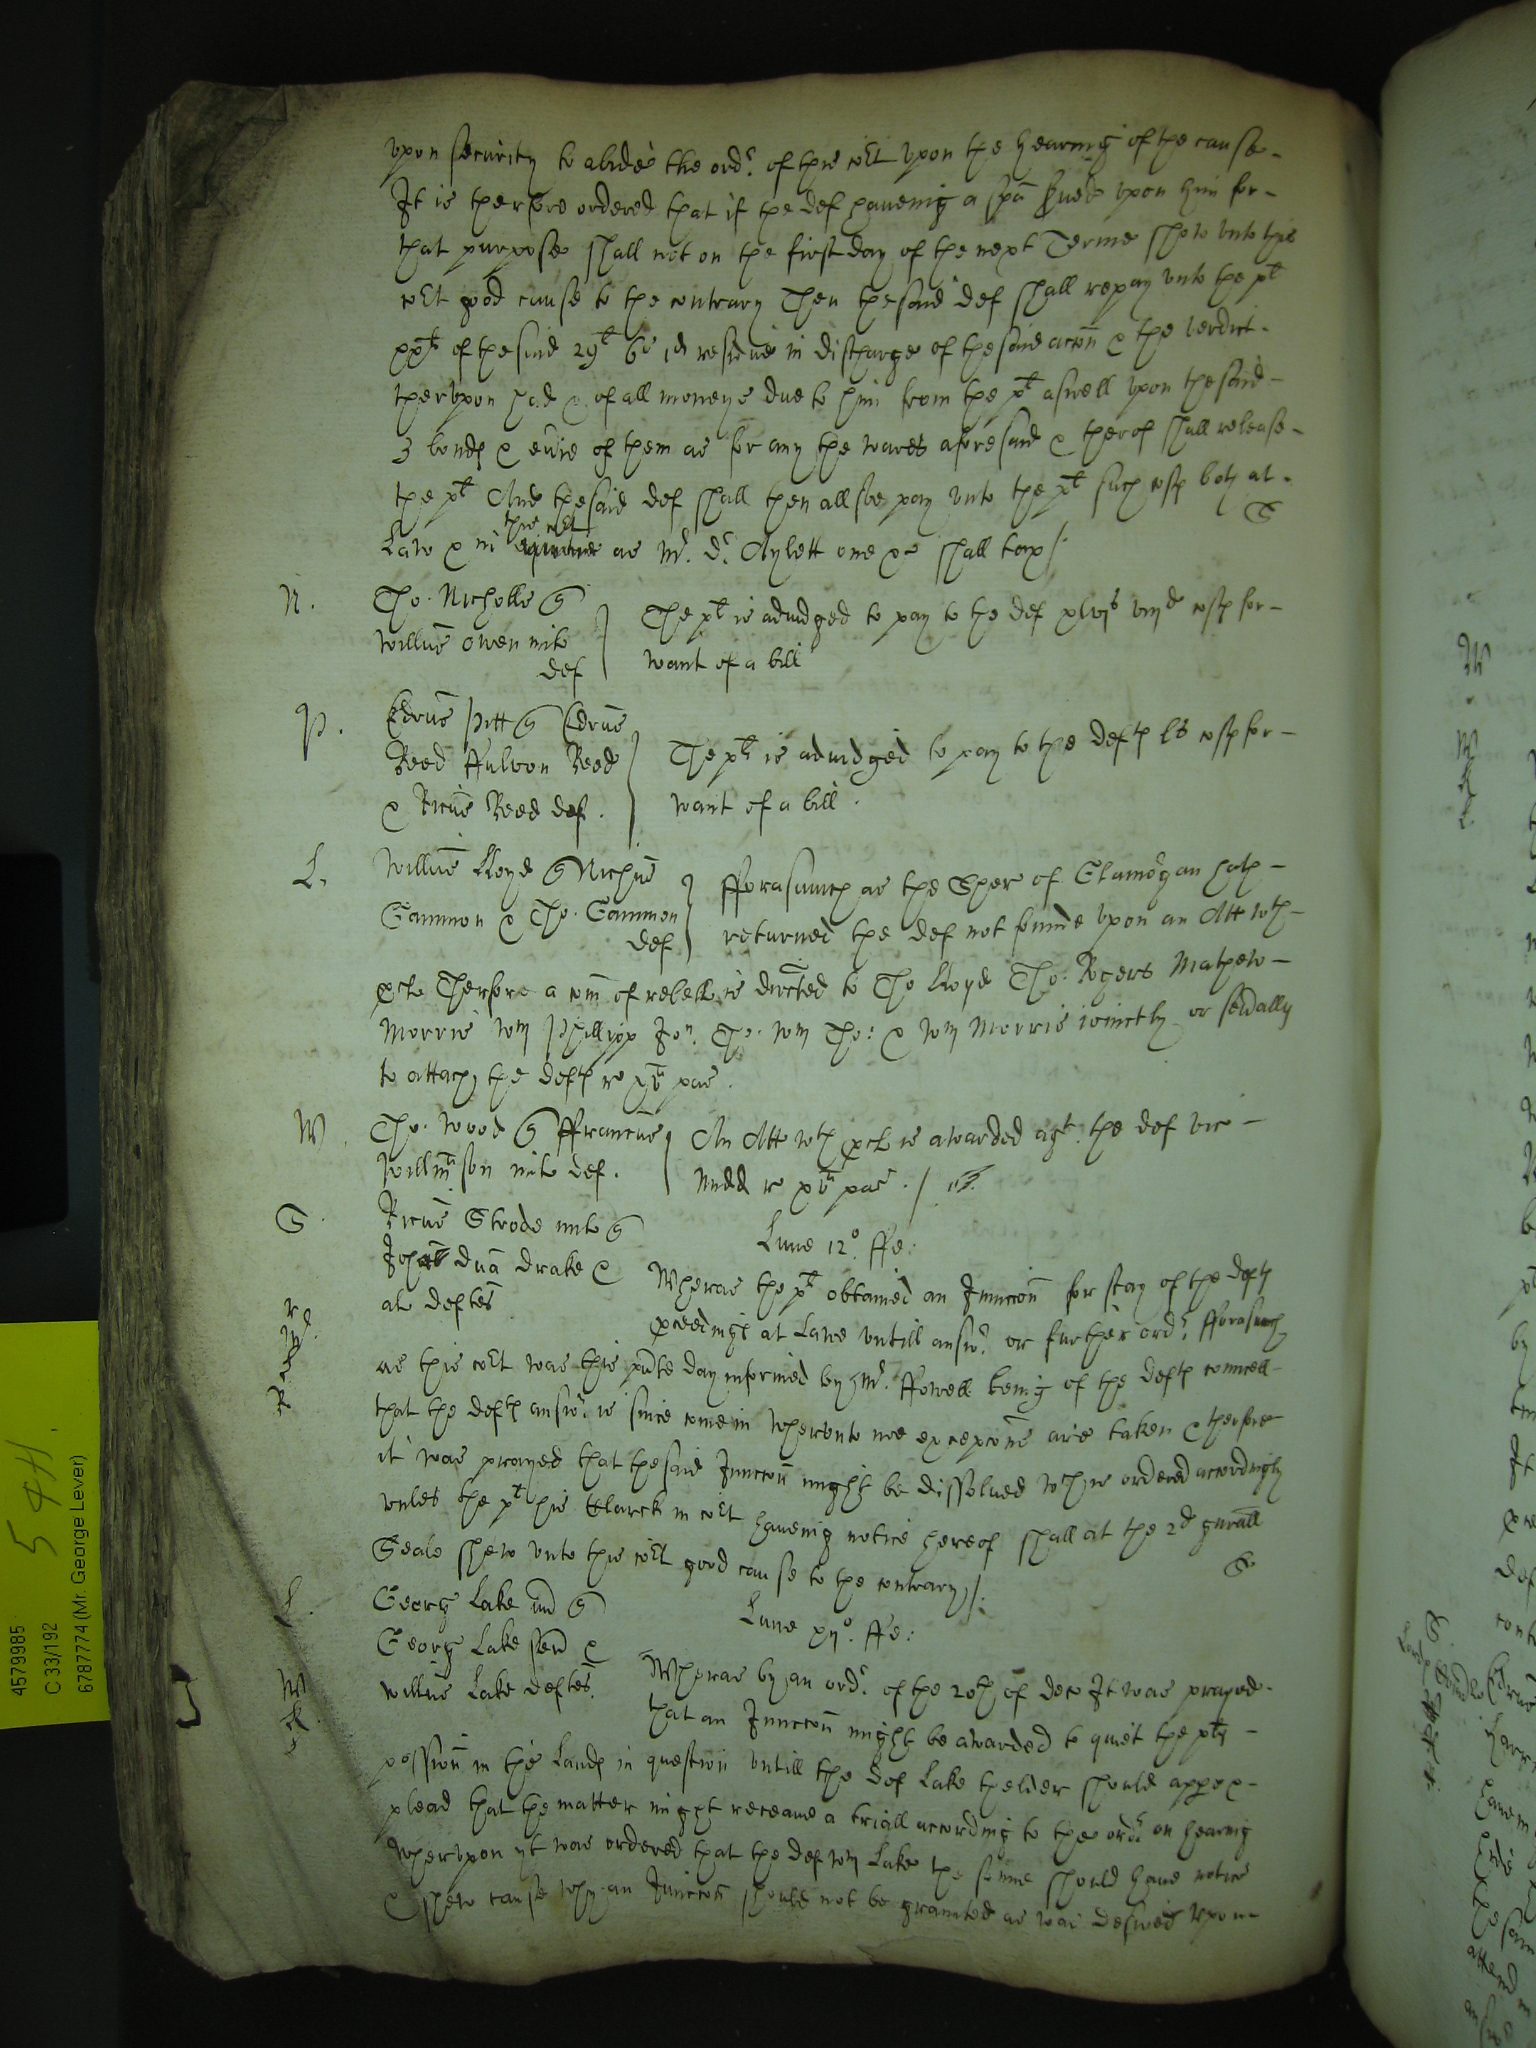 vpon security to abide the ordr. of this cort vpon the hearing of the cause
It is therfore ordered that if the def haueing a spa serued vpon him for
that purpose shall not on the first day of the next Terme shew vnto this
cort good cause to the contrary Then thesaid def shall repay vnto the plt
of thesaid 29l 6s 1d residue in discharge of thesaid accon & the verdict
thervpon had & of all moneys due to him from the plt aswell vpon thesaid
3 bonds & euie of them as for any the wares aforesaid & therof shall release
the plt And thesaid def shall then allsoe pay vnto the plt such costs both at
this cort
Law & in as Mr. Dr. Aylett one &c shall tax /.
N. Tho. Nicholls
Willus Owen milt
def
The plt is adiudged to pay to the def xlvjs viijd costs for
want of a bill
P. Edrus Pitt Edrus
Reed Fulwon Reed
& Ricus Reed def.
The plt is adiudged to pay to the defts ls costs for
want of a bill.
L. Willus Lloyd Nichus
Gammon & Tho. Gammon
def
fforasmuch as the Sher of Glamorgan hath
returned the def not found vpon an Att wth
pcls Therfore a com of rebell is directed to Tho Lloyd Tho. Rogers Mathew
Morris Wm Phillipp Jon. Tho. Wm Tho: & Wm Morris ioinctly or seually
to attach the defts re xv pas.
W. Tho. Wood ffrancus
Willmson milt def.
An Att wth pcls is awarded agt. the def vic
Midd re xv pas. /
S. Ricus Strode milt
Joh dna Drake &
als deftes
Lune 12o. ffe:
Wheras the plt obtained an Iniuccon for stay of the defts
pceedings at Lawe vntill answr. or further ordr. fforasmuch
as this cort was this pnte day informed by Mr. ffowell being of the defts councell
that the defts answr. is since come in wherevnto noe excepcons are taken & therfore
it was prayed that thesaid Iniuccon might be dissolued wch is ordered accordingly
vnles the plt his Clarck in cort haueing notice hereof shall at the 2d gnrall
Seale shew vnto this cort good cause to the contrary /.
L. Georg Lake iun
Georg Lake sen &
Willus Lake deftes.
Lune xijo. ffe:
Wheras by an ordr. of the 20th of Dec It was prayed
that an Iniuccon might be awarded to quiet the plts
possion in the Lands in question vntill the def Lake thelder should appe &
plead that the matter might receaue a triall according to the ordr on hearing
Whervpon yt was ordered that the def Wm Lake the sonne should haue notice
& shew cause why an Iniuccon should not be graunted as was desired vpon
4579985
C 33/192
6787774 (Mr. George Lever)